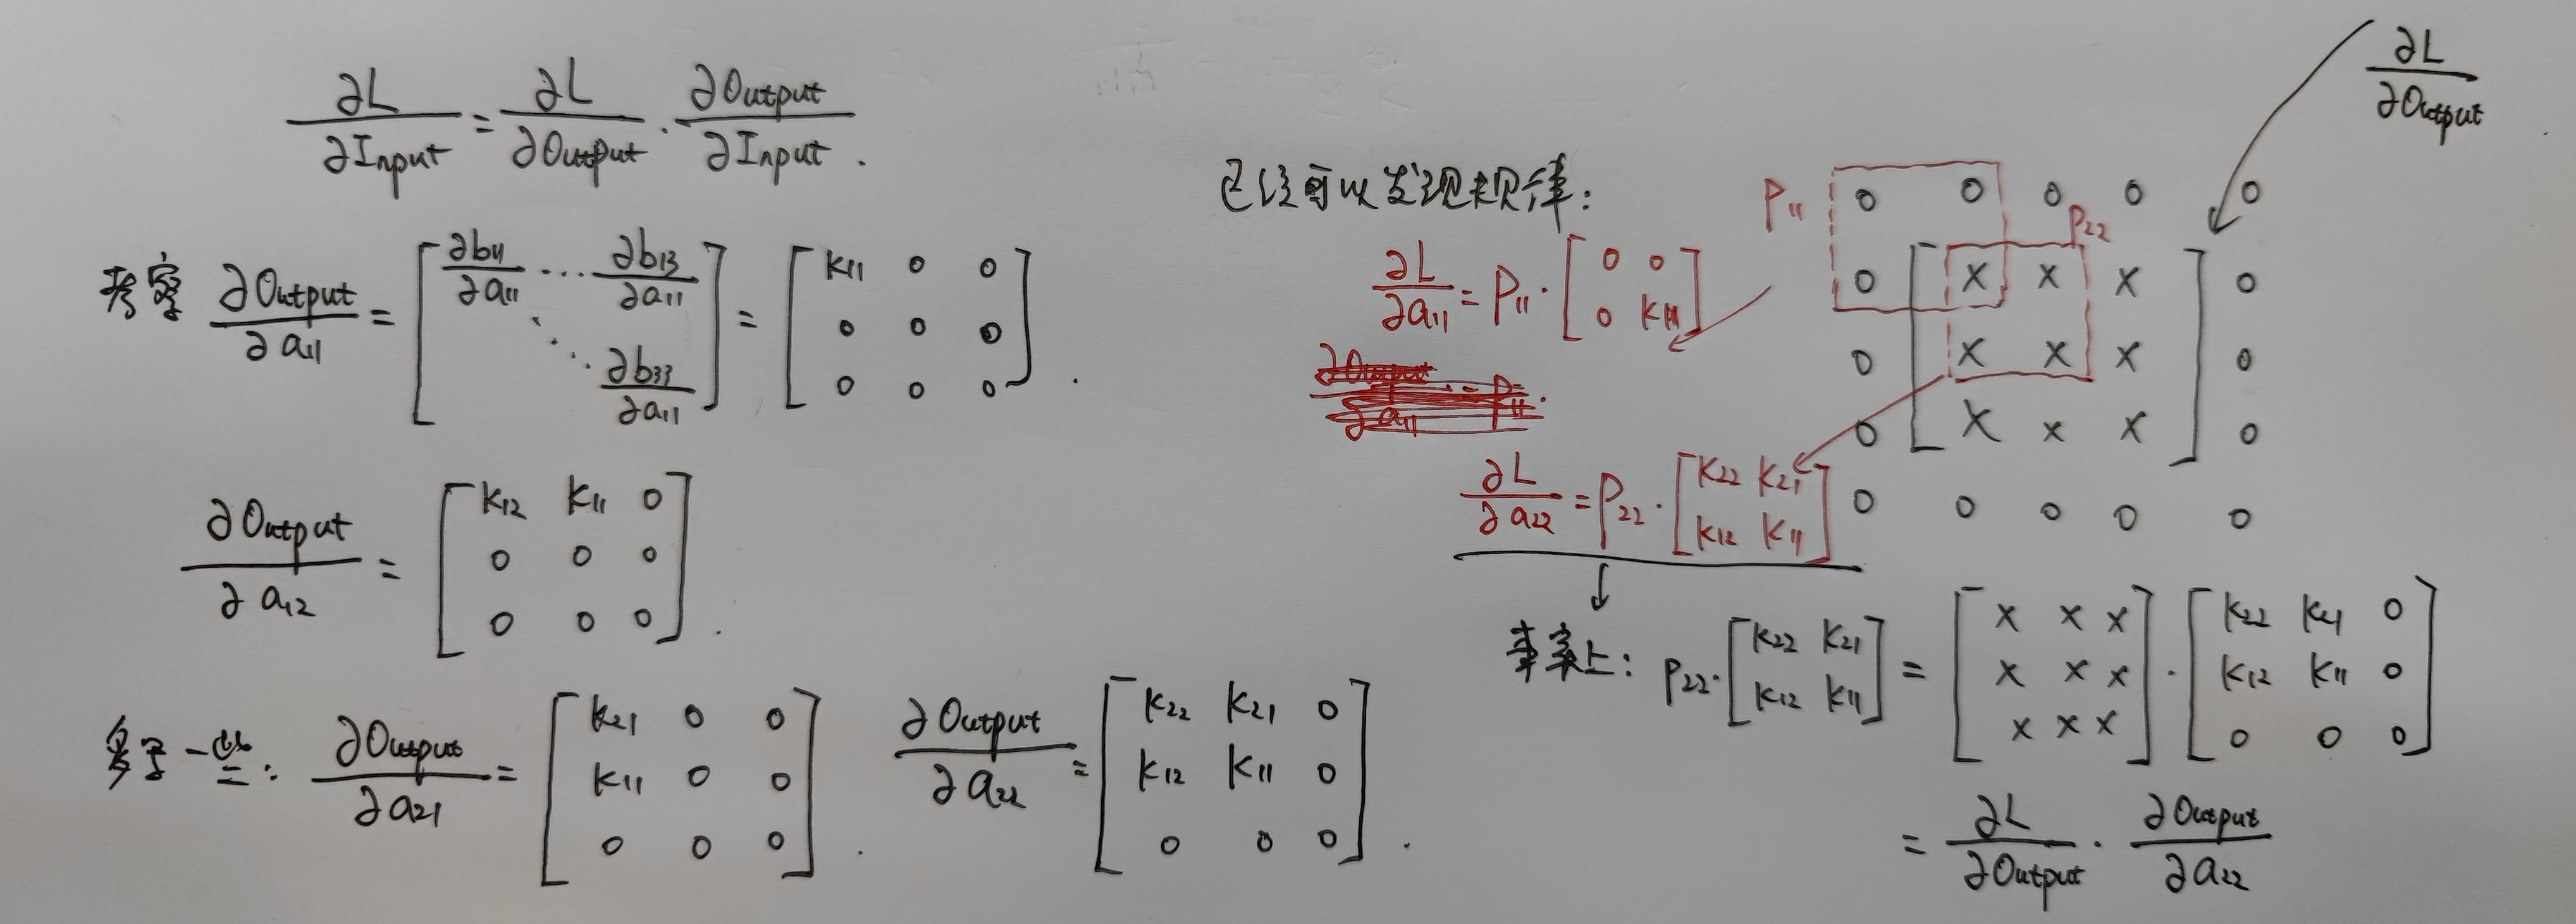 ∂L/∂Input = ∂L/∂Output · ∂Output/∂Input .
考察 ∂Output/∂a11 = [ ∂b11/∂a11 ... ∂b13/∂a11 ⋱ ∂b33/∂a11 ] = [ k11 0 0
0 0 0
0 0 0 ] .
∂Output/∂a12 = [ k12 k11 0
0 0 0
0 0 0 ] .
多写一些: ∂Output/∂a21 = [ k21 0 0
k11 0 0
0 0 0 ] .
∂Output/∂a22 = [ k22 k21 0
k12 k11 0
0 0 0 ] .
已经可以发现规律:
∂L/∂a11 = P11 · [ 0 0
0 k11 ]
∂L/∂a22 = P22 · [ k22 k21
k12 k11 ]
∂L/∂Output
P11
P22
0 0 0 0 0
0 [ x x x ] 0
0 [ x x x ] 0
0 [ x x x ] 0
0 0 0 0 0
事实上: P22 · [ k22 k21
k12 k11 ] = [ x x x
x x x
x x x ] · [ k22 k21 0
k12 k11 0
0 0 0 ]
= ∂L/∂Output · ∂Output/∂a22